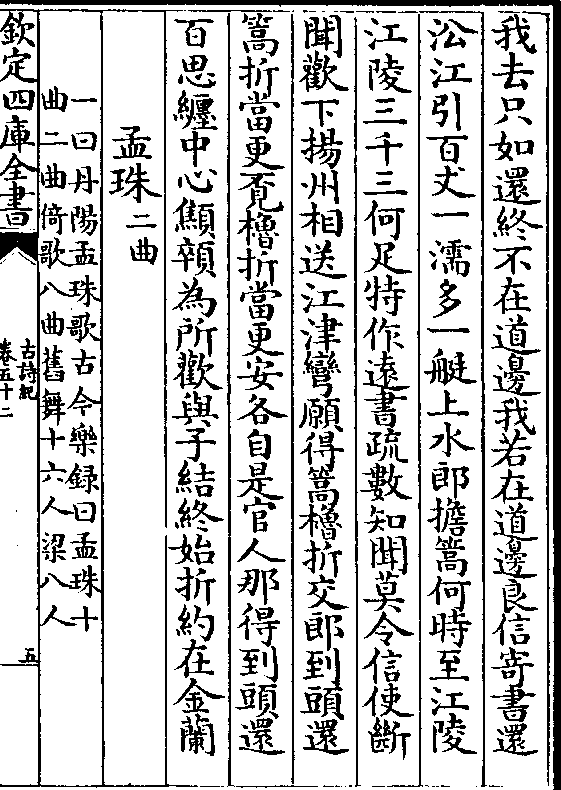 我去只如還終不在道邊我若在道邊良信寄書還
㳂江引百丈一濡多一艇上水郎擔篙何時至江陵
江陵三千三何足特作遠書疏數知聞莫令信使斷
聞歡下揚州相送江津彎願得篙櫓折交郎到頭還
篙折當更覔櫓折當更安各自是官人那得到頭還
百思纒中心顦顇為所歡與子結終始折約在金蘭
孟珠二曲
一曰丹陽孟珠歌古今樂録曰孟珠十
曲二曲倚歌八曲舊舞十六人梁八人
欽定四庫全書
古詩紀
卷五十二
五